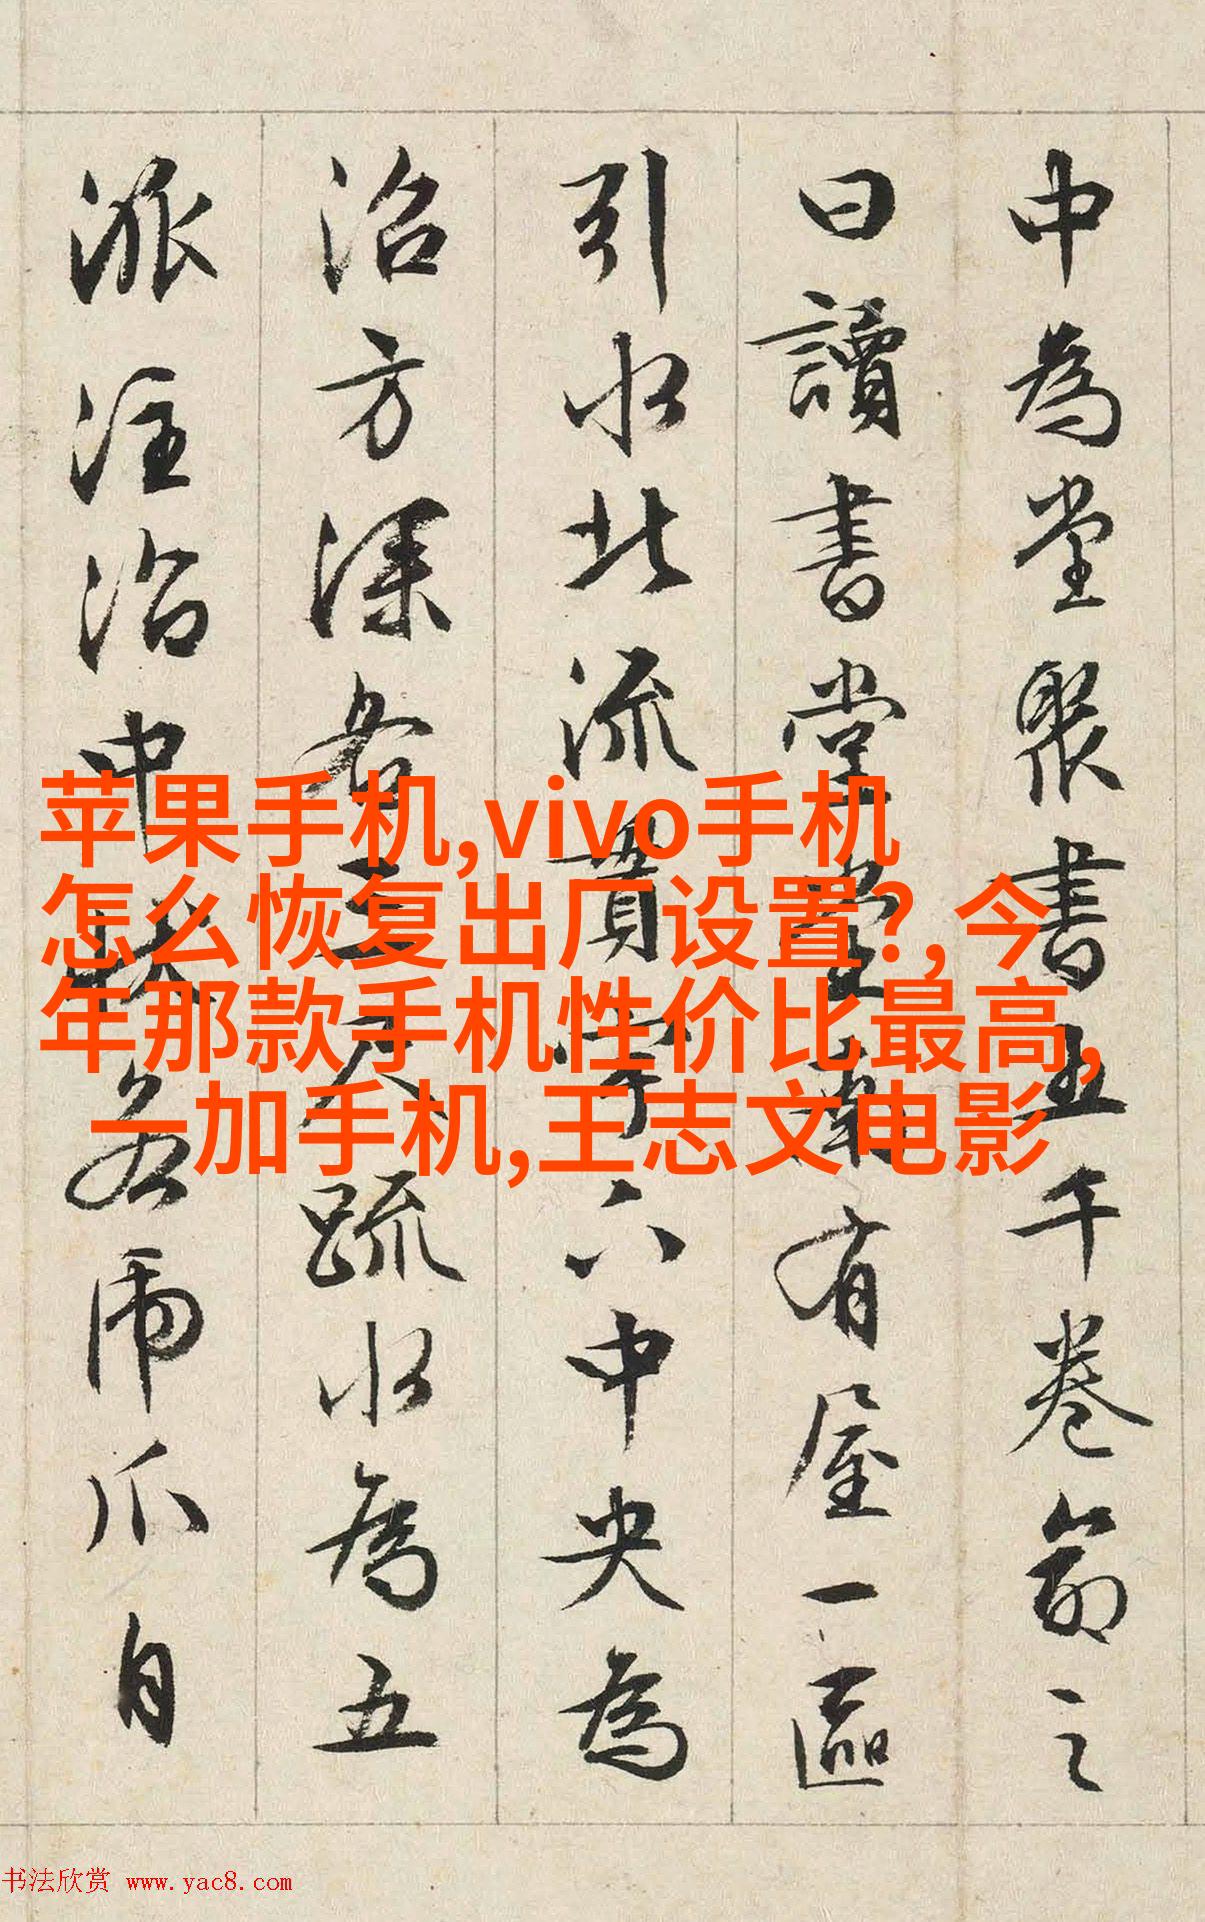 中為堂聚書五千卷命之
曰讀書堂堂南有屋一區
引水北流貫宇下中央為
沼方深各三尺疏水為五
派注沼中若虎爪自
苹果手机,vivo手机
怎么恢复出厂设置?,今
年那款手机性价比最高,
一加手机,王志文电影
书法欣赏 www.yac8.com